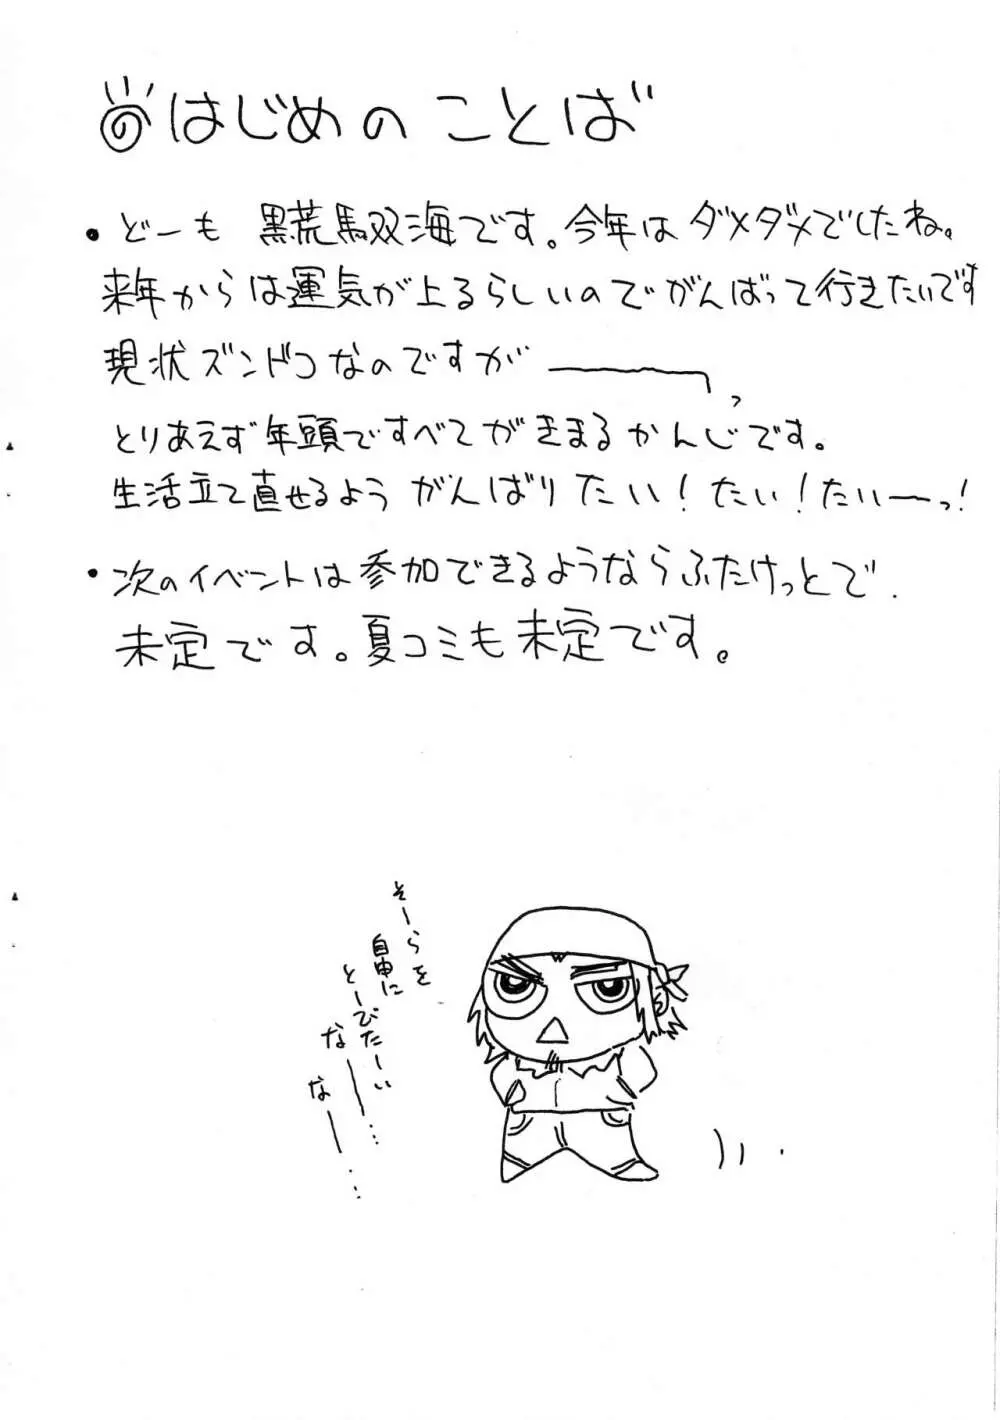 はじめのことば
・どーも 黒荒馬双海です。今年はダメダメでしたね。
来年からは運気が上るらしいのでがんばって行きたいです
現状ズンドコなのですが――――っ
とりあえず年頭ですべてがきまるかんじです。
生活立て直せるよう がんばりたい!たい!たいーっ!
・次のイベントは参加できるようならふたけっとで.
未定です。夏コミも未定です。
そーらを
自由に
とーびたーい
なー…
なー…